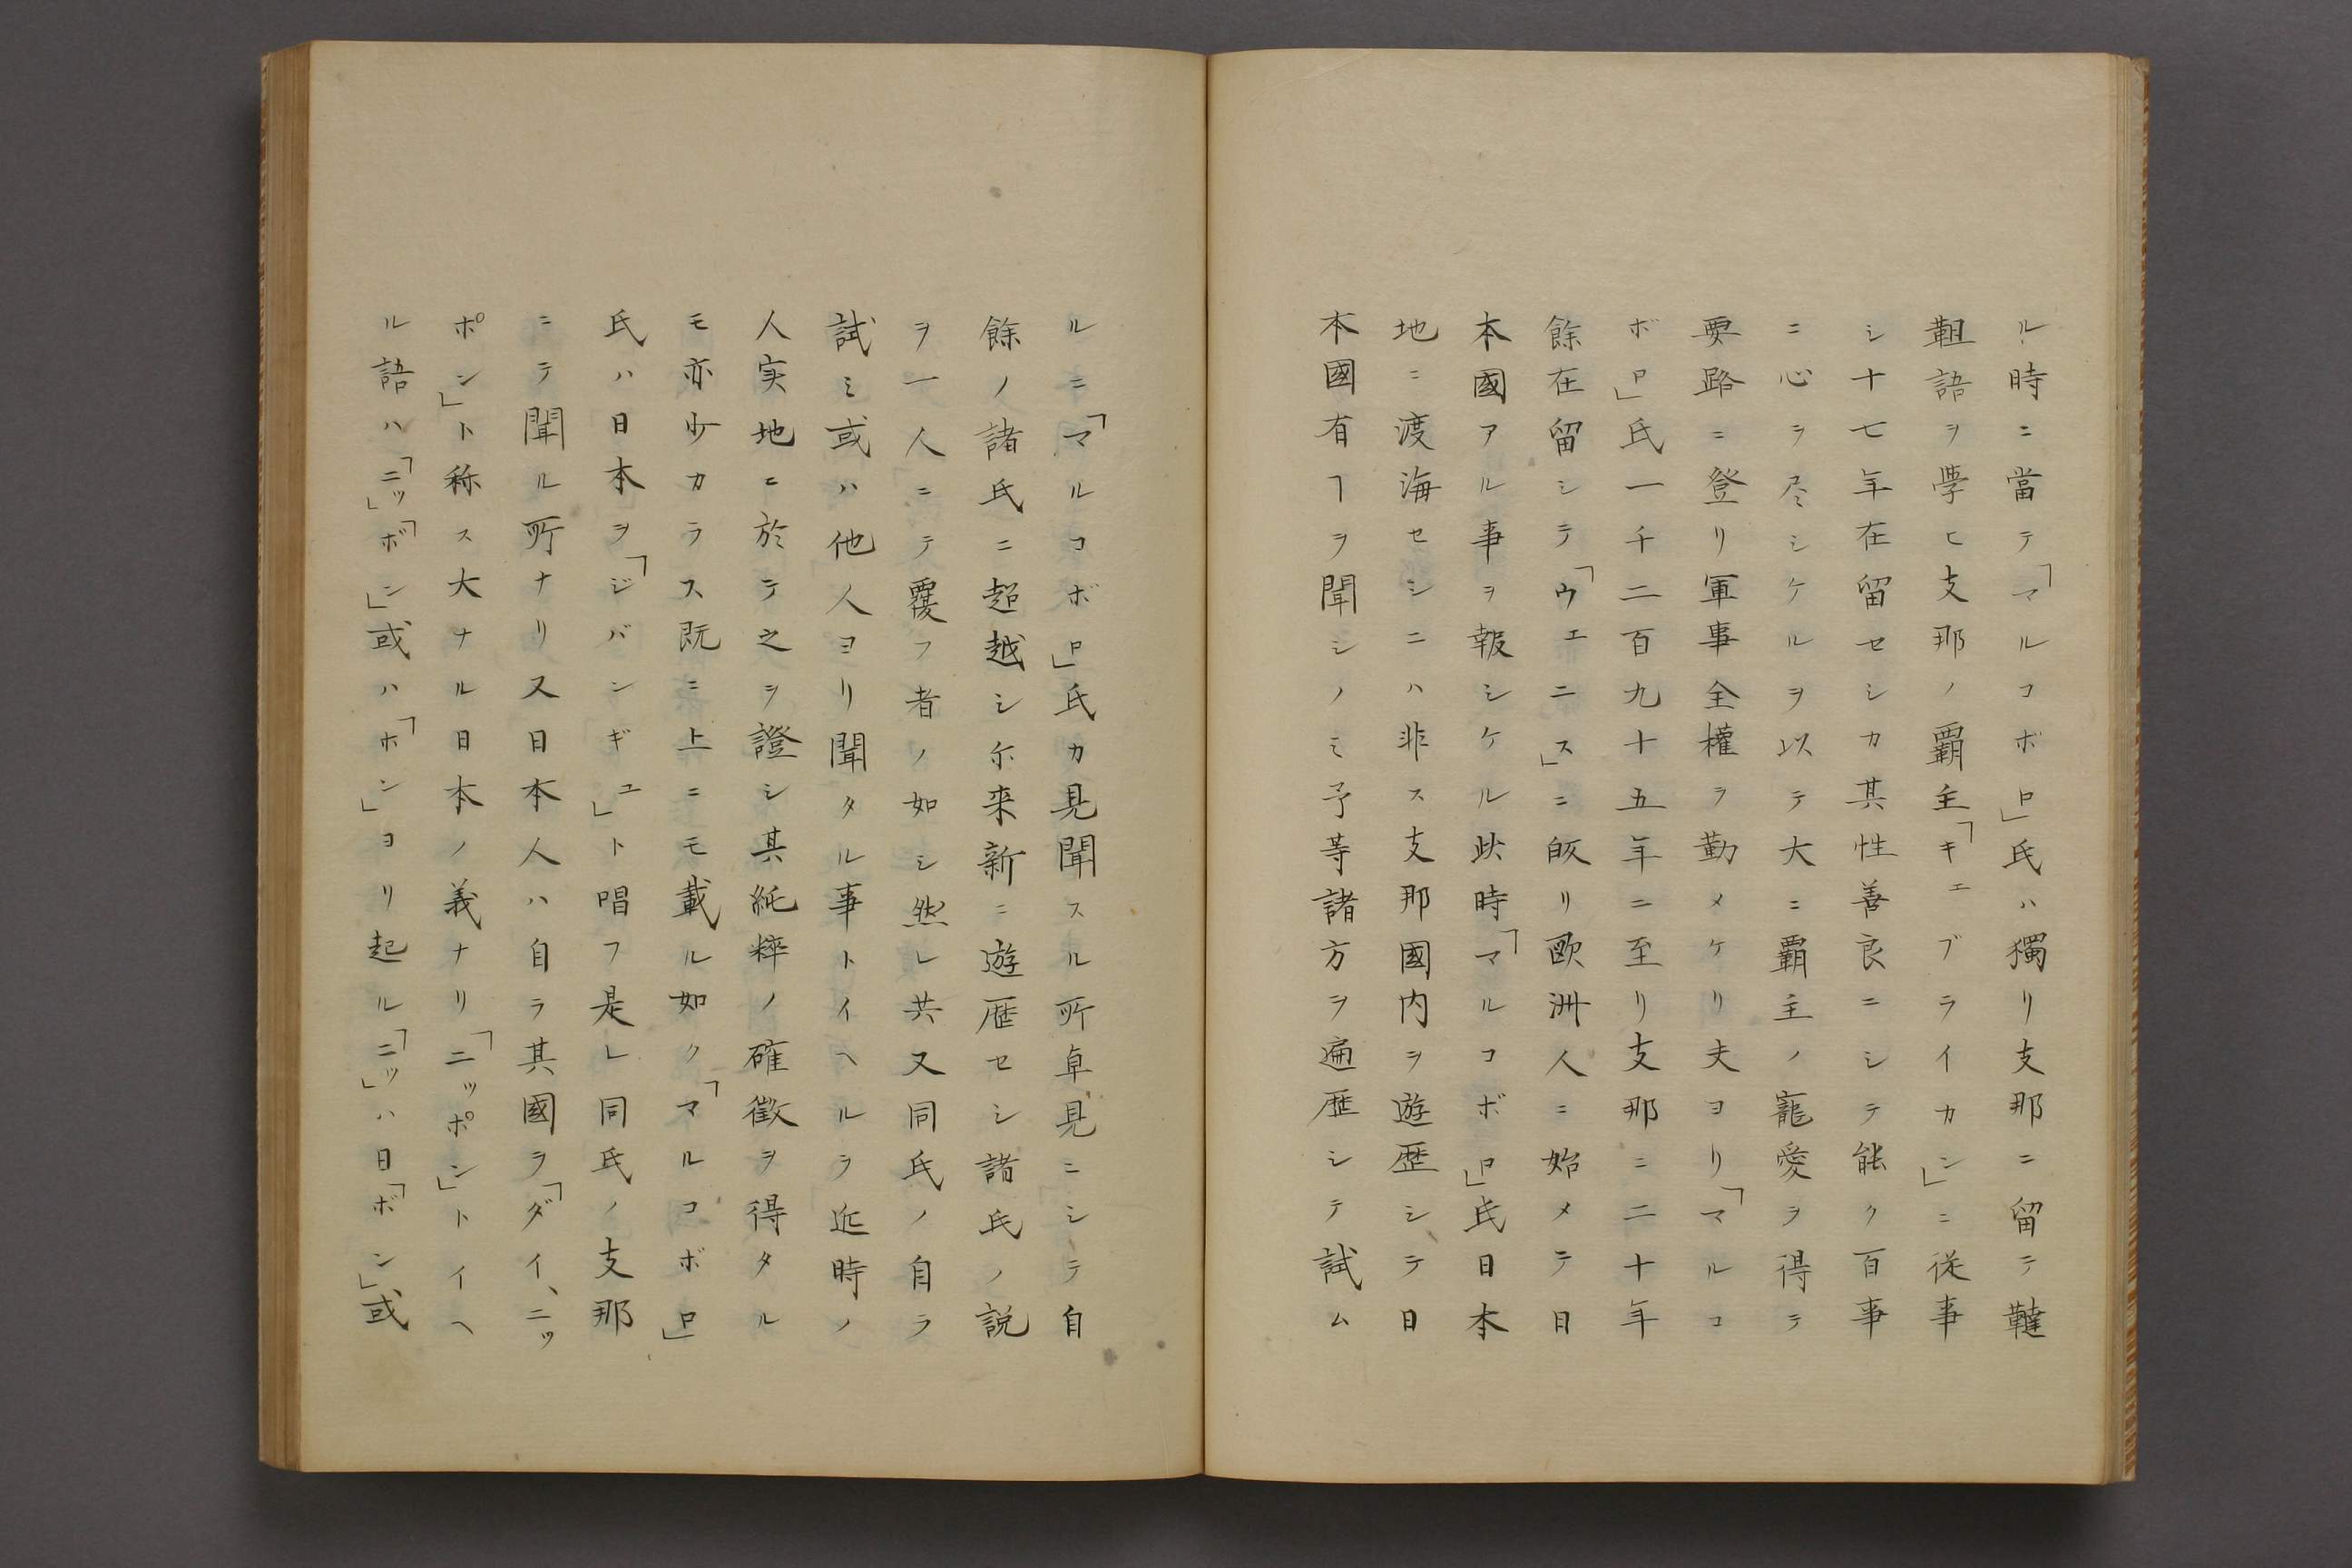 ル時ニ當テ「マルコボロ」氏ハ獨リ支那ニ留テ韃
靼語ヲ學ヒ支那ノ覇主「キエブライカン」ニ従事
シ十七年在留セシカ其性善良ニシテ能ク百事
ニ心ヲ尽シケルヲ以テ大ニ覇主ノ寵愛ヲ得テ
要路ニ登リ軍事全權ヲ勤メケリ夫ヨリ「マルコ
ボロ」氏一千二百九十五年ニ至リ支那ニ二十年
餘在留シテ「ウエニス」ニ皈リ歐洲人ニ始メテ日
本國アル事ヲ報シケル此時「マルコボロ」氏日本
地ニ渡海セシニハ非ス支那國内ヲ遊歴シテ日
本國有ヿヲ聞シノミ予等諸方ヲ遍歴シテ試ム
ルニ「マルコボロ」氏カ見聞スル所卓見ニシテ自
餘ノ諸氏ニ超越シ尓来新ニ遊歴セシ諸氏ノ説
ヲ一人ニテ覆フ者ノ如シ然レ共又同氏ノ自ラ
試ミ或ハ他人ヨリ聞タル事トイヘルヲ近時ノ
人実地ニ於テ之ヲ證シ其純粹ノ確徴ヲ得タル
モ亦少カラス既ニ上ニモ載ル如ク「マルコボロ」
氏ハ日本ヲ「ジバンギユ」ト唱フ是レ同氏ノ支那
ニテ聞ル所ナリ又日本人ハ自ラ其國ヲ「ダイ、ニッ
ポン」ト称ス大ナル日本ノ義ナリ「ニッポン」トイヘ
ル語ハ「ニッ」「ボン」或ハ「ホン」ヨリ起ル「ニッ」ハ日「ボン」或